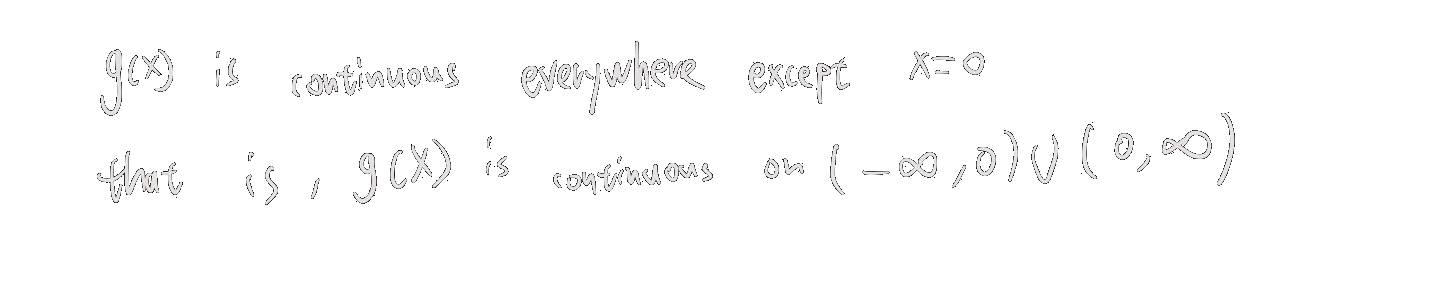 g(x) is continuous everywhere except x=0
that is, g(x) is continuous on (-∞,0)∪(0,∞)